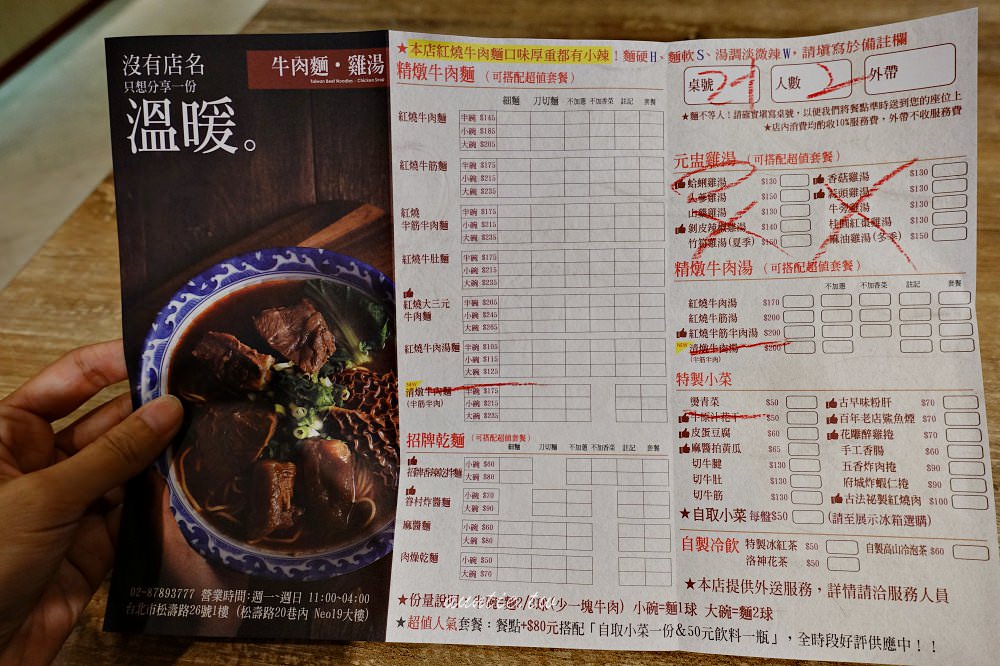 沒有店名
只想分享一份
溫暖。
牛肉麵・雞湯
Taiwan Beef Noodles・Chicken Soup
02-87893777 營業時間:週一~週日 11:00-04:00
台北市松壽路26號1樓 (松壽路20巷內 Neo19大樓)
★本店紅燒牛肉麵口味厚重都有小辣!麵硬H、麵軟S、湯調淡微辣W,請填寫於備註欄
精燉牛肉麵 (可搭配超值套餐)
細麵 刀切麵 不加蔥 不加香菜 註記 套餐
紅燒牛肉麵 半碗 $145
小碗 $185
大碗 $205
紅燒牛筋麵 半碗 $175
小碗 $215
大碗 $235
紅燒
半筋半肉麵
半碗 $175
小碗 $215
大碗 $235
紅燒牛肚麵 半碗 $175
小碗 $215
大碗 $235
紅燒大三元
牛肉麵
半碗 $205
小碗 $245
大碗 $265
紅燒牛肉湯麵 半碗 $105
小碗 $115
大碗 $125
NEW
清燉牛肉麵
(半筋半肉)
半碗 $175
小碗 $215
大碗 $235
招牌乾麵 (可搭配超值套餐)
細麵 刀切麵 不加蔥 不加香菜 註記 套餐
招牌香辣乾拌麵 小碗 $60
大碗 $80
眷村炸醬麵 小碗 $70
大碗 $90
麻醬麵 小碗 $60
大碗 $80
肉燥乾麵 小碗 $50
大碗 $70
★份量說明:半碗=麵2/3球(少一塊牛肉) 小碗=麵1球 大碗=麵2球
★超值人氣套餐:餐點+$80元搭配「自取小菜一份&50元飲料一瓶」,全時段好評供應中!!
桌號 21
人數 2
外帶
★麵不等人!請確實填寫桌號,以便我們將餐點準時送到您的座位上
★店內消費均酌收10%服務費,外帶不收服務費
元盅雞湯 (可搭配超值套餐)
蛤蜊雞湯 $130
人蔘雞湯 $150
山藥雞湯 $130
剝皮辣椒雞湯 $140
竹笙雞湯(夏季) $150
香菇雞湯 $130
蒜頭雞湯 $130
牛蒡雞湯 $130
桂圓紅棗雞湯 $130
麻油雞湯(冬季) $150
精燉牛肉湯 (可搭配超值套餐)
不加蔥 不加香菜 註記 套餐
紅燒牛肉湯 $170
紅燒牛筋湯 $200
紅燒半筋半肉湯 $200
NEW 清燉牛肉湯 $200
(半筋半肉)
特製小菜
燙青菜 $50
牛原汁花干 $50
皮蛋豆腐 $60
麻醬拍黃瓜 $65
切牛腱 $130
切牛肚 $130
切牛筋 $130
古早味粉肝 $70
百年老店鯊魚煙 $70
花雕醉雞捲 $70
手工香腸 $60
五香炸肉捲 $90
府城炸蝦仁捲 $90
古法祕製紅燒肉 $100
★自取小菜 每盤$50 (請至展示冰箱選購)
自製冷飲 特製冰紅茶 $50 自製高山冷泡茶 $60
洛神花茶 $50
★本店提供外送服務,詳情請洽服務人員